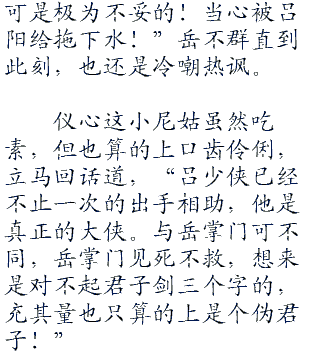 可是极为不妥的！当心被吕
阳给拖下水！”岳不群直到
此刻，也还是冷嘲热讽。
仪心这小尼姑虽然吃
素，但也算的上口齿伶俐，
立马回话道，“吕少侠已经
不止一次的出手相助，他是
真正的大侠。与岳掌门可不
同，岳掌门见死不救，想来
是对不起君子剑三个字的，
充其量也只算的上是个伪君
子！”